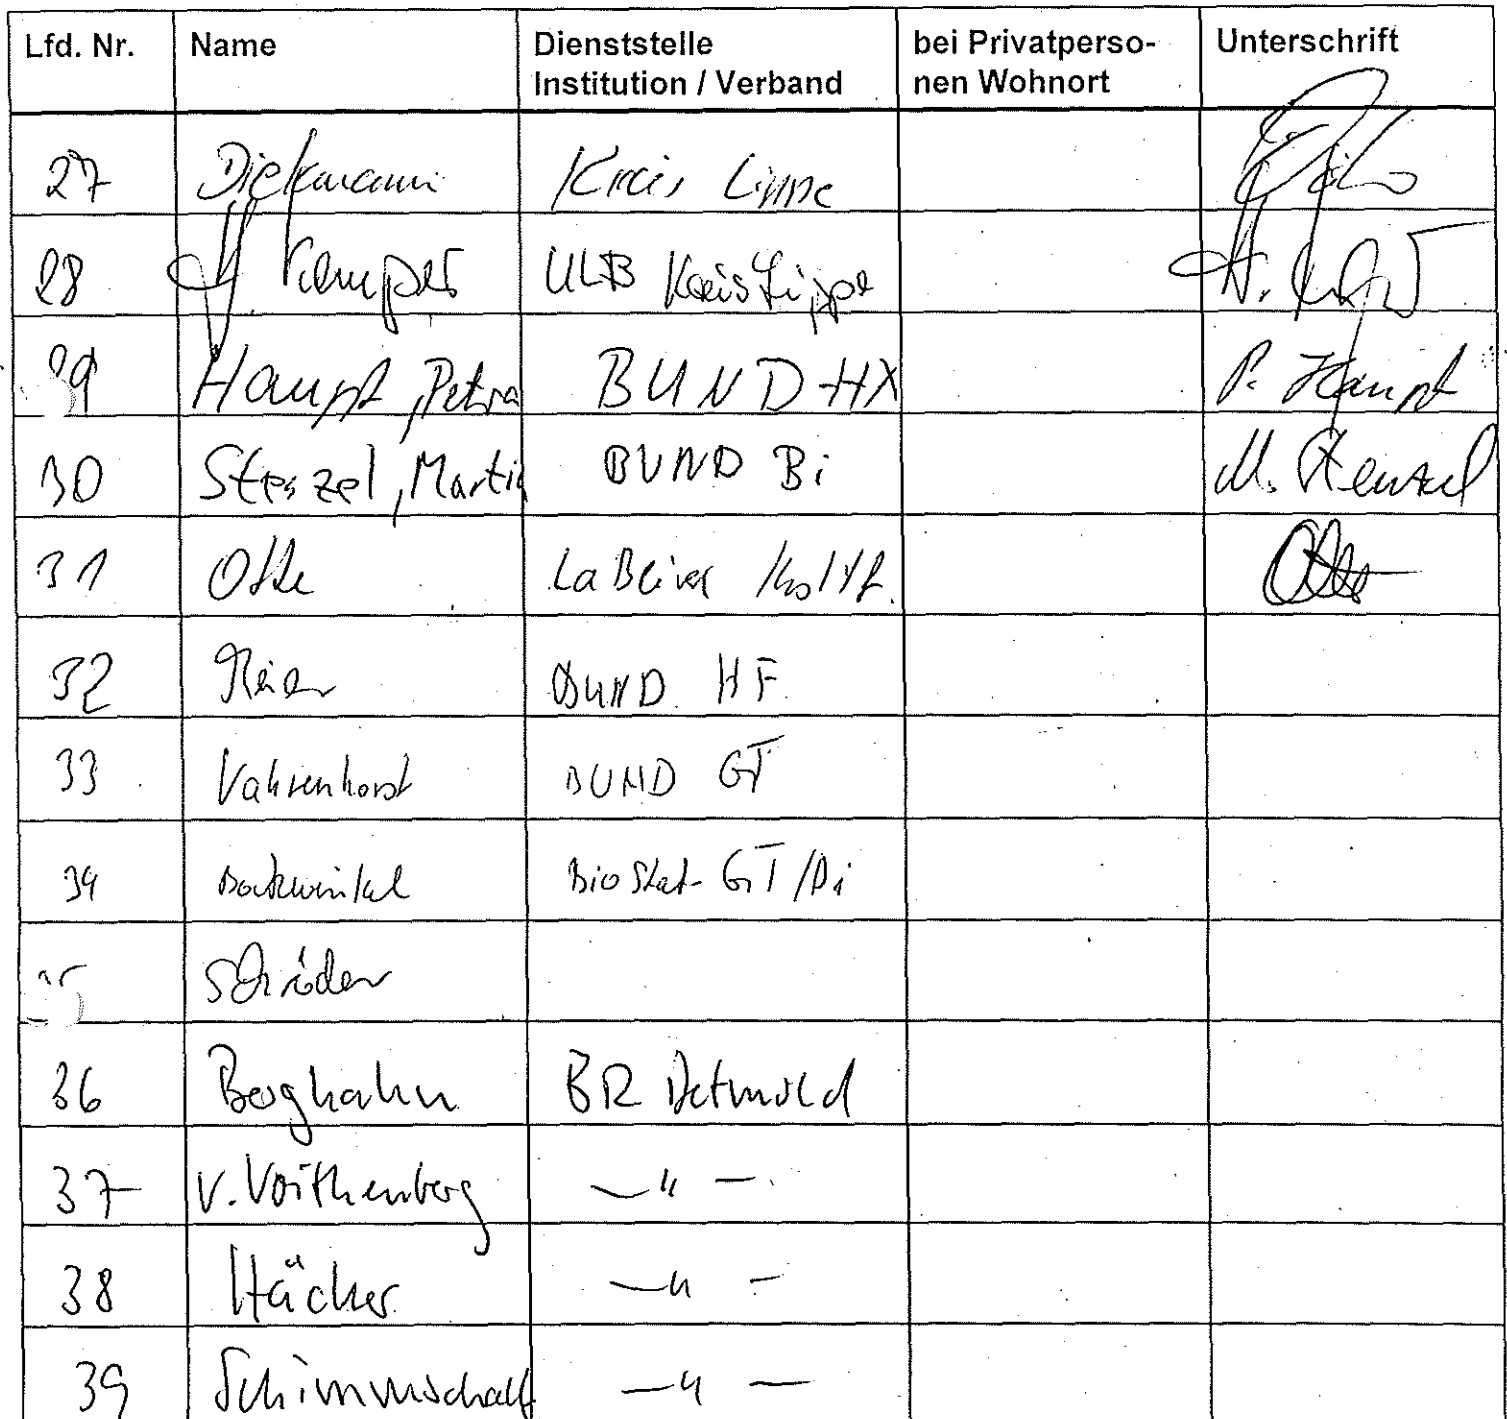 Lfd. Nr. Name Dienststelle Institution / Verband bei Privatperso- nen Wohnort Unterschrift
27 Diekmann Kreis Lippe
28 H. Kemper ULB Kreis Lippe
29 Haupt, Petra BUND HX P. Haupt
30 Stenzel, Martin BUND Bi M. Stenzel
31 Otte Otte
32 BUND HF
33 Vahrenhorst BUND GT
34 Bockwinkel BioStat GT/Bi
35 Schröder
36 Berghahn BR Detmold
37 v. Voithenberg — " —
38 Häcker — " —
39 — " —